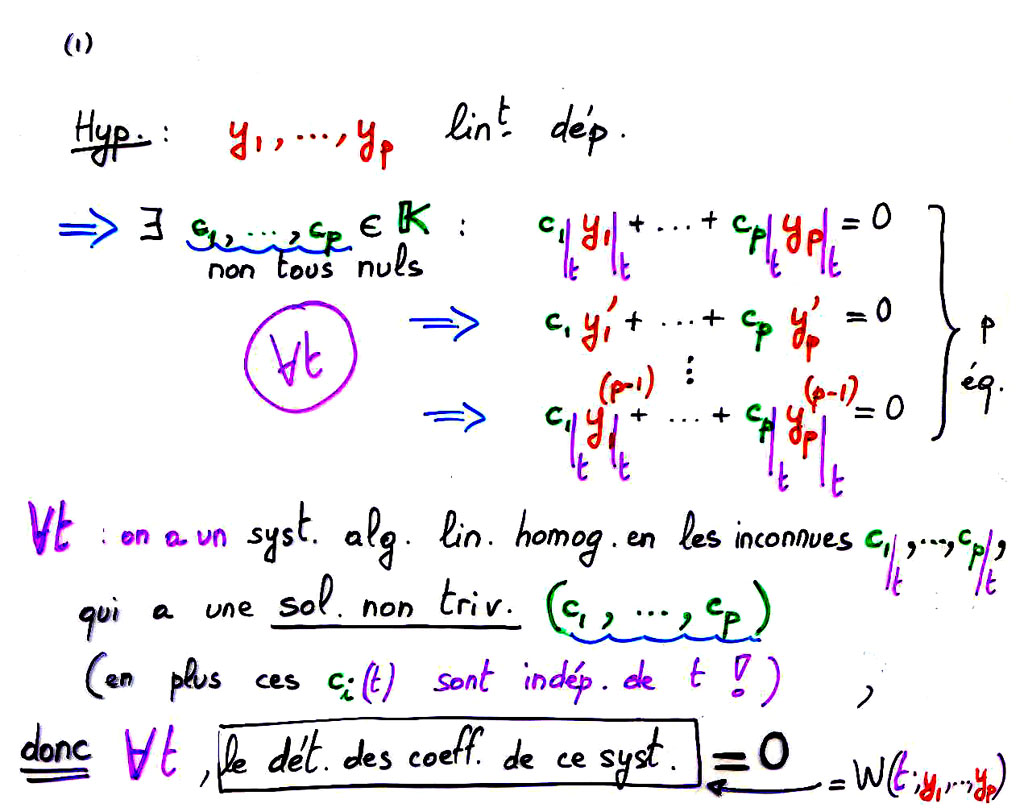 (1)
Hyp. : y₁, ..., yₚ linᵗ dép.
⇒ ∃ c₁, ..., cₚ ∈ 𝕂 : c₁|ₜ y₁|ₜ + ... + cₚ|ₜ yₚ|ₜ = 0
non tous nuls
∀t ⇒ c₁ y₁' + ... + cₚ yₚ' = 0
⋮
⇒ c₁|ₜ y₁⁽ᵖ⁻¹⁾|ₜ + ... + cₚ|ₜ yₚ⁽ᵖ⁻¹⁾|ₜ = 0
} p
éq.
∀t : on a un syst. alg. lin. homog. en les inconnues c₁|ₜ, ..., cₚ|ₜ,
qui a une sol. non triv. (c₁, ..., cₚ)
(en plus ces cᵢ(t) sont indép. de t !) ,
donc ∀t, le dét. des coeff. de ce syst. = 0
= W(t; y₁, ..., yₚ)